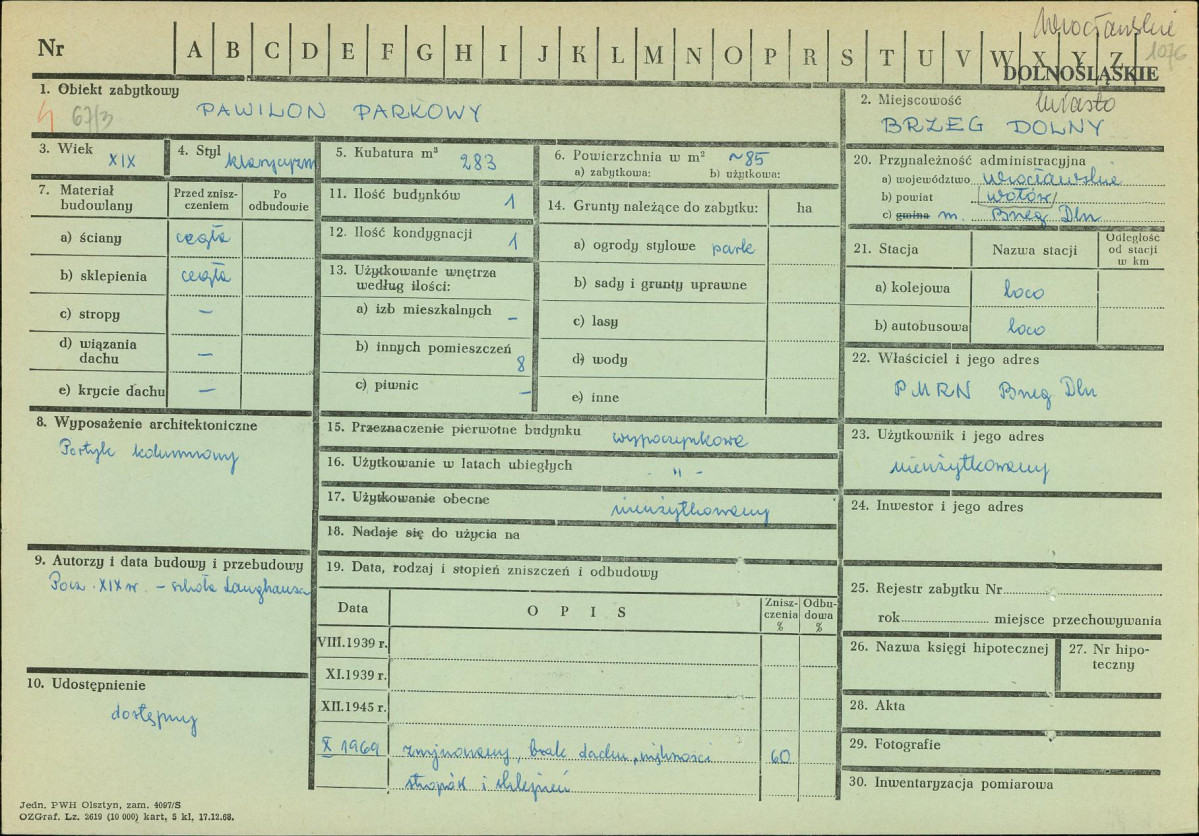 Wrocławskie
Nr A B C D E F G H I J K L M N O P R S T U V W X Y Z 1076
DOLNOŚLĄSKIE
1. Obiekt zabytkowy
67/3 PAWILON PARKOWY
2. Miejscowość miasto
BRZEG DOLNY
3. Wiek XIX
4. Styl klasycyzm
5. Kubatura m³ 283
6. Powierzchnia w m² ~85
a) zabytkowa: b) użytkowa:
7. Materiał budowlany
Przed zniszczeniem
Po odbudowie
a) ściany cegła
b) sklepienia cegła
c) stropy –
d) wiązania dachu –
e) krycie dachu –
8. Wyposażenie architektoniczne
Portyk kolumnowy
9. Autorzy i data budowy i przebudowy
Pocz. XIX w. – szkoła Langhansa
10. Udostępnienie
dostępny
11. Ilość budynków 1
12. Ilość kondygnacji 1
13. Użytkowanie wnętrza według ilości:
a) izb mieszkalnych –
b) innych pomieszczeń 8
c) piwnic –
14. Grunty należące do zabytku: ha
a) ogrody stylowe park
b) sady i grunty uprawne
c) lasy
d) wody
e) inne
15. Przeznaczenie pierwotne budynku wypoczynkowe
16. Użytkowanie w latach ubiegłych - " -
17. Użytkowanie obecne nieużytkowany
18. Nadaje się do użycia na
19. Data, rodzaj i stopień zniszczeń i odbudowy
Data OPIS Zniszczenia % Odbudowa %
VIII.1939 r.
XI.1939 r.
XII.1945 r.
X 1969 zrujnowany, brak dachu, większości 60
stropów i sklepień
20. Przynależność administracyjna
a) województwo wrocławskie
b) powiat wołów
c) gmina m. Brzeg Dln
21. Stacja Nazwa stacji Odległość od stacji w km
a) kolejowa loco
b) autobusowa loco
22. Właściciel i jego adres
PMRN Brzeg Dln
23. Użytkownik i jego adres
nieużytkowany
24. Inwestor i jego adres
25. Rejestr zabytku Nr
rok miejsce przechowywania
26. Nazwa księgi hipotecznej
27. Nr hipoteczny
28. Akta
29. Fotografie
30. Inwentaryzacja pomiarowa
Jedn. PWH Olsztyn, zam. 4097/S
OZGraf. Lz. 2619 (10 000) kart, 5 kl, 17.12.68.